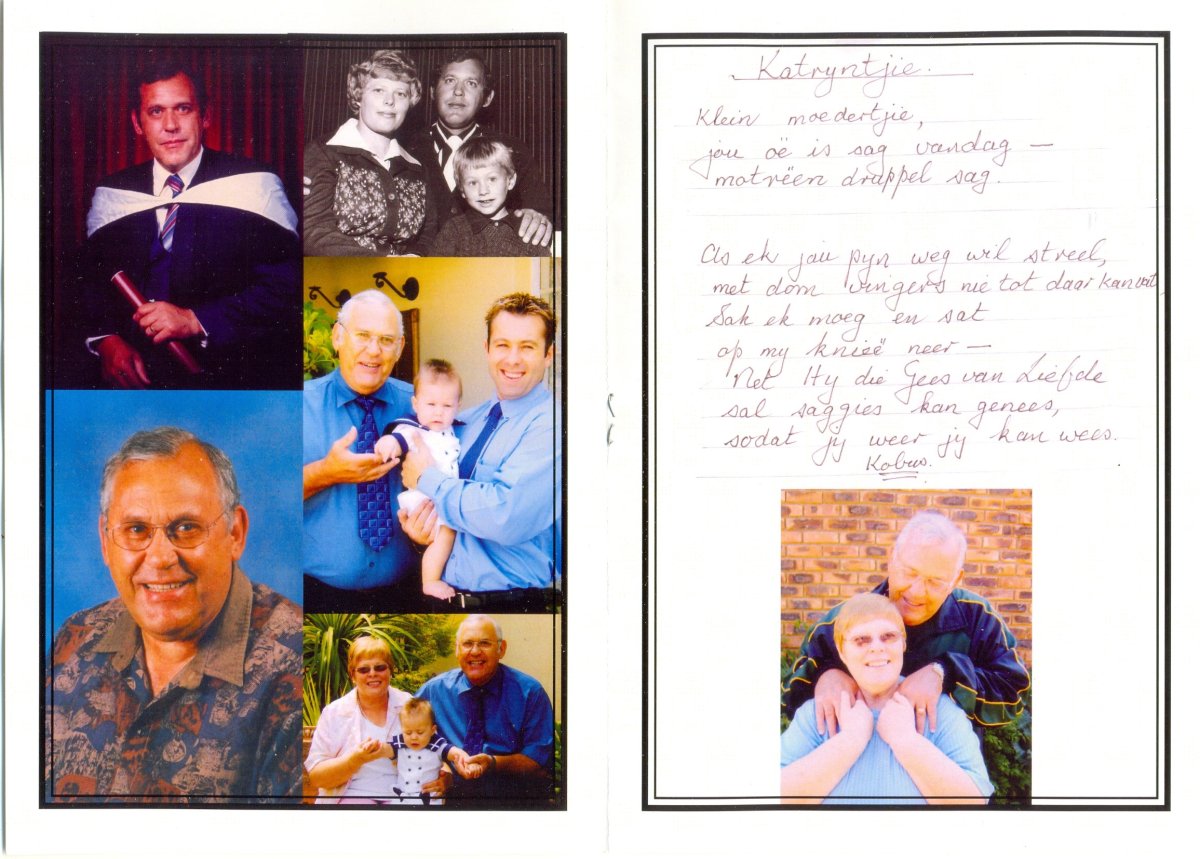 Katryntjie.
Klein moedertjie,
jou oë is sag vandag —
motrëen drappel sag.
As ek jou pyn weg wil streel,
met dom vingers nie tot daar kan vat
Sak ek moeg en sat
op my knieë neer —
Net Hy die Gees van Liefde
sal saggies kan genees,
sodat jy weer jy kan wees.
Kobus.